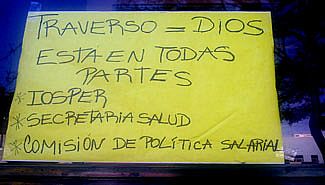 TRAVERSO = DIOS
ESTA EN TODAS
PARTES
* IOSPER
* SECRETARIA SALUD
* COMISIÓN DE POLÍTICA SALARIAL